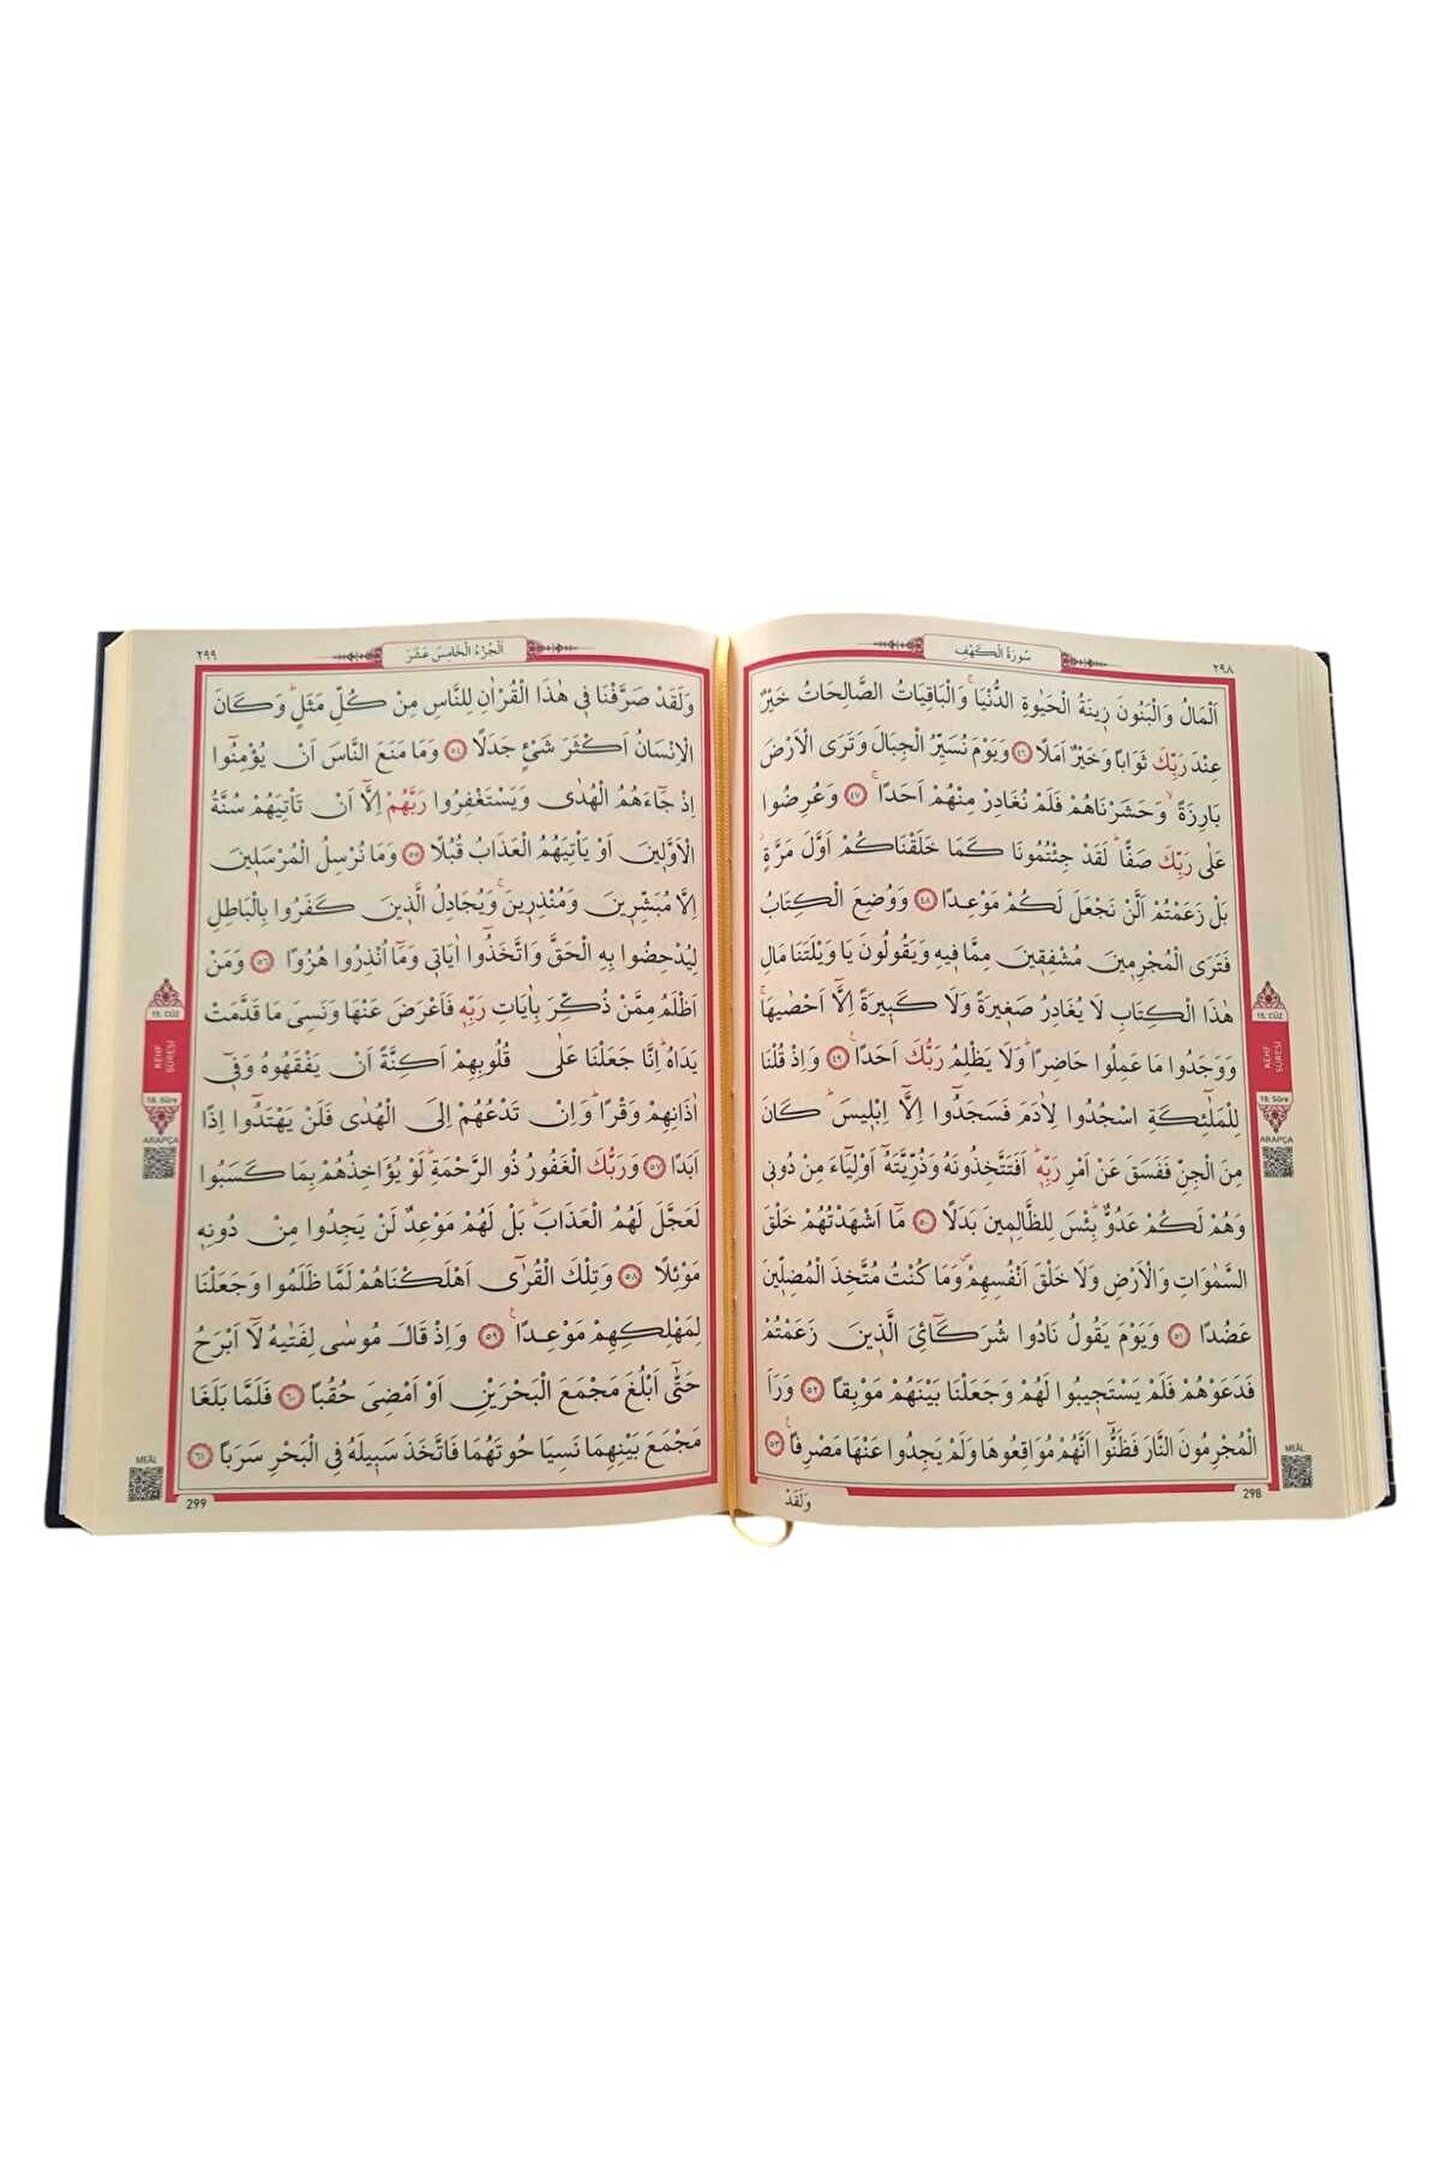 سُورَةُ الْكَهْفِ
٢٩٨
اَلْمَالُ وَالْبَنُونَ زٖينَةُ الْحَيٰوةِ الدُّنْيَاۚ وَالْبَاقِيَاتُ الصَّالِحَاتُ خَيْرٌ
عِنْدَ رَبِّكَ ثَوَاباً وَخَيْرٌ اَمَلًا ﴿٤٦﴾ وَيَوْمَ نُسَيِّرُ الْجِبَالَ وَتَرَى الْاَرْضَ
بَارِزَةًۙ وَحَشَرْنَاهُمْ فَلَمْ نُغَادِرْ مِنْهُمْ اَحَدًاۚ ﴿٤٧﴾ وَعُرِضُوا
عَلٰى رَبِّكَ صَفًّاؕ لَقَدْ جِئْتُمُونَا كَمَا خَلَقْنَاكُمْ اَوَّلَ مَرَّةٍؗ
بَلْ زَعَمْتُمْ اَلَّنْ نَجْعَلَ لَكُمْ مَوْعِدًا ﴿٤٨﴾ وَوُضِعَ الْكِتَابُ
فَتَرَى الْمُجْرِمٖينَ مُشْفِقٖينَ مِمَّا فٖيهِ وَيَقُولُونَ يَا وَيْلَتَنَا مَالِ
هٰذَا الْكِتَابِ لَا يُغَادِرُ صَغٖيرَةً وَلَا كَبٖيرَةً اِلَّٓا اَحْصٰيهَاۚ
وَوَجَدُوا مَا عَمِلُوا حَاضِرًاؕ وَلَا يَظْلِمُ رَبُّكَ اَحَدًاۚ ﴿٤٩﴾ وَاِذْ قُلْنَا
لِلْمَلٰٓئِكَةِ اسْجُدُوا لِاٰدَمَ فَسَجَدُٓوا اِلَّٓا اِبْلٖيسَؕ كَانَ
مِنَ الْجِنِّ فَفَسَقَ عَنْ اَمْرِ رَبِّهٖؕ اَفَتَتَّخِذُونَهُ وَذُرِّيَّتَهُٓ اَوْلِيَٓاءَ مِنْ دُونٖى
وَهُمْ لَكُمْ عَدُوٌّؕ بِئْسَ لِلظَّالِمٖينَ بَدَلًا ﴿٥٠﴾ مَٓا اَشْهَدْتُهُمْ خَلْقَ
السَّمٰوَاتِ وَالْاَرْضِ وَلَا خَلْقَ اَنْفُسِهِمْ وَمَا كُنْتُ مُتَّخِذَ الْمُضِلّٖينَ
عَضُدًا ﴿٥١﴾ وَيَوْمَ يَقُولُ نَادُوا شُرَكَٓائِىَ الَّذٖينَ زَعَمْتُمْ
فَدَعَوْهُمْ فَلَمْ يَسْتَجٖيبُوا لَهُمْ وَجَعَلْنَا بَيْنَهُمْ مَوْبِقًا ﴿٥٢﴾ وَرَاَ
الْمُجْرِمُونَ النَّارَ فَظَنُّٓوا اَنَّهُمْ مُوَاقِعُوهَا وَلَمْ يَجِدُوا عَنْهَا مَصْرِفًاۚ ﴿٥٣﴾
وَلَقَدْ
298
15. CÜZ
KEHF
SÛRESİ
18. Sûre
ARAPÇA
MEÂL
اَلْجُزْءُ الْخَامِسَ عَشَرَ
٢٩٩
وَلَقَدْ صَرَّفْنَا فٖى هٰذَا الْقُرْاٰنِ لِلنَّاسِ مِنْ كُلِّ مَثَلٍؕ وَكَانَ
الْاِنْسَانُ اَكْثَرَ شَيْءٍ جَدَلًا ﴿٥٤﴾ وَمَا مَنَعَ النَّاسَ اَنْ يُؤْمِنُٓوا
اِذْ جَٓاءَهُمُ الْهُدٰى وَيَسْتَغْفِرُوا رَبَّهُمْ اِلَّٓا اَنْ تَأْتِيَهُمْ سُنَّةُ
الْاَوَّلٖينَ اَوْ يَأْتِيَهُمُ الْعَذَابُ قُبُلًا ﴿٥٥﴾ وَمَا نُرْسِلُ الْمُرْسَلٖينَ
اِلَّا مُبَشِّرٖينَ وَمُنْذِرٖينَۚ وَيُجَادِلُ الَّذٖينَ كَفَرُوا بِالْبَاطِلِ
لِيُدْحِضُوا بِهِ الْحَقَّ وَاتَّخَذُٓوا اٰيَاتٖى وَمَٓا اُنْذِرُوا هُزُوًا ﴿٥٦﴾ وَمَنْ
اَظْلَمُ مِمَّنْ ذُكِّرَ بِاٰيَاتِ رَبِّهٖ فَاَعْرَضَ عَنْهَا وَنَسِىَ مَا قَدَّمَتْ
يَدَاهُؕ اِنَّا جَعَلْنَا عَلٰى قُلُوبِهِمْ اَكِنَّةً اَنْ يَفْقَهُوهُ وَفٖٓى
اٰذَانِهِمْ وَقْرًاؕ وَاِنْ تَدْعُهُمْ اِلَى الْهُدٰى فَلَنْ يَهْتَدُٓوا اِذًا
اَبَدًا ﴿٥٧﴾ وَرَبُّكَ الْغَفُورُ ذُو الرَّحْمَةِؕ لَوْ يُؤَاخِذُهُمْ بِمَا كَسَبُوا
لَعَجَّلَ لَهُمُ الْعَذَابَؕ بَلْ لَهُمْ مَوْعِدٌ لَنْ يَجِدُوا مِنْ دُونِهٖ
مَوْئِلًا ﴿٥٨﴾ وَتِلْكَ الْقُرٰٓى اَهْلَكْنَاهُمْ لَمَّا ظَلَمُوا وَجَعَلْنَا
لِمَهْلِكِهِمْ مَوْعِدًاۚ ﴿٥٩﴾ وَاِذْ قَالَ مُوسٰى لِفَتٰيهُ لَٓا اَبْرَحُ
حَتّٰٓى اَبْلُغَ مَجْمَعَ الْبَحْرَيْنِ اَوْ اَمْضِىَ حُقُبًا ﴿٦٠﴾ فَلَمَّا بَلَغَا
مَجْمَعَ بَيْنِهِمَا نَسِيَا حُوتَهُمَا فَاتَّخَذَ سَبٖيلَهُ فِى الْبَحْرِ سَرَبًا ﴿٦١﴾
299
15. CÜZ
KEHF
SÛRESİ
18. Sûre
ARAPÇA
MEÂL